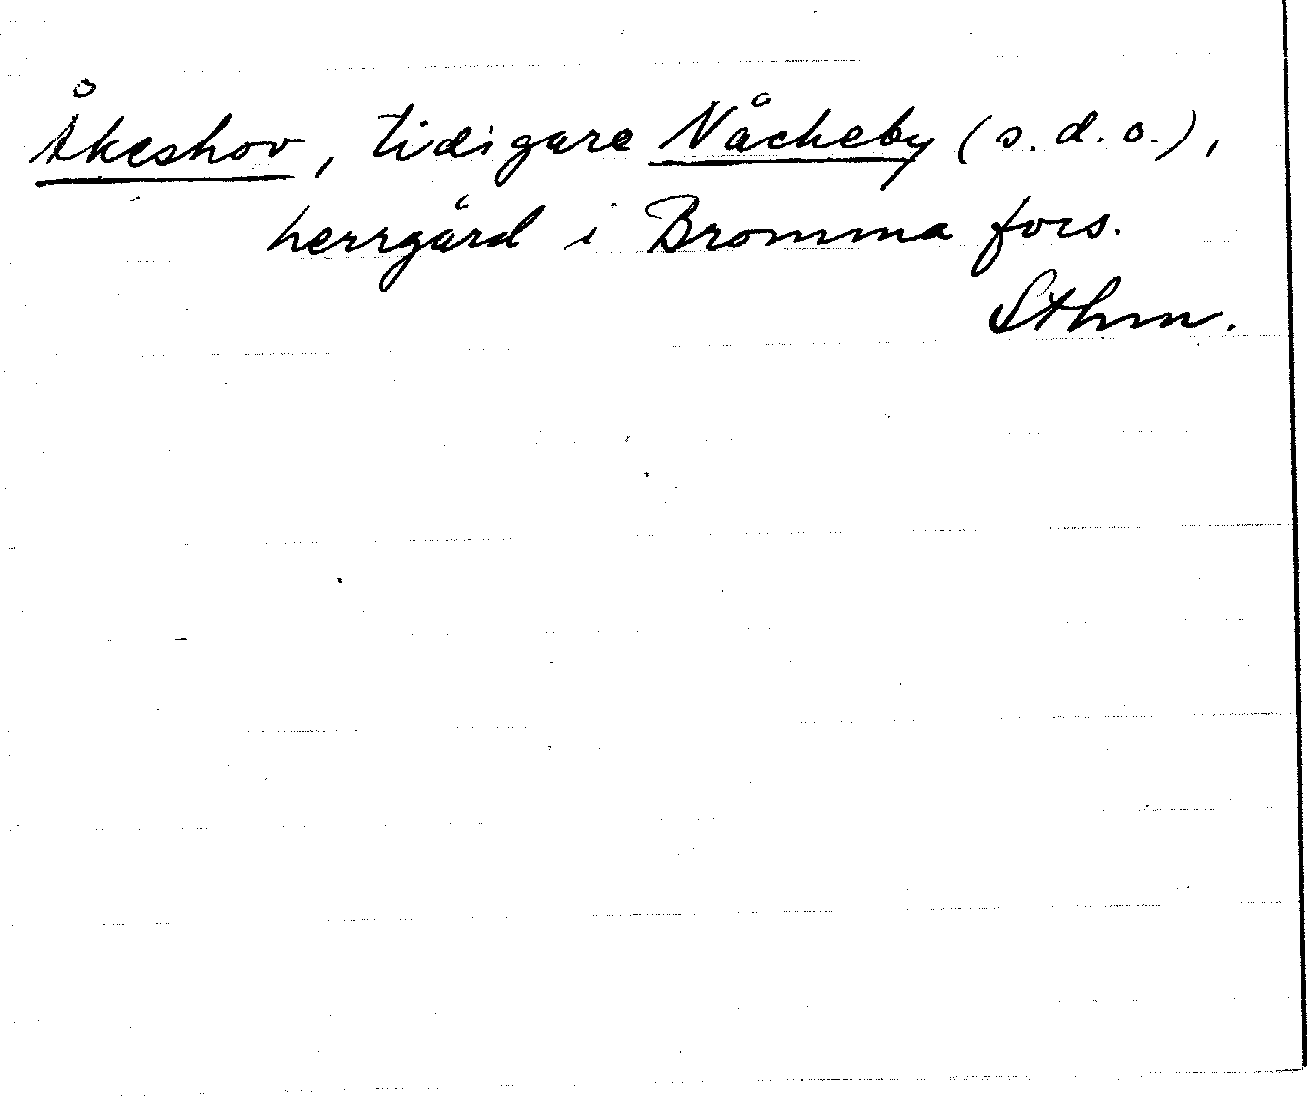 Åkeshov, tidigare Nåckeby (s. d. o.),
herrgård i Bromma förs.
Sthm.